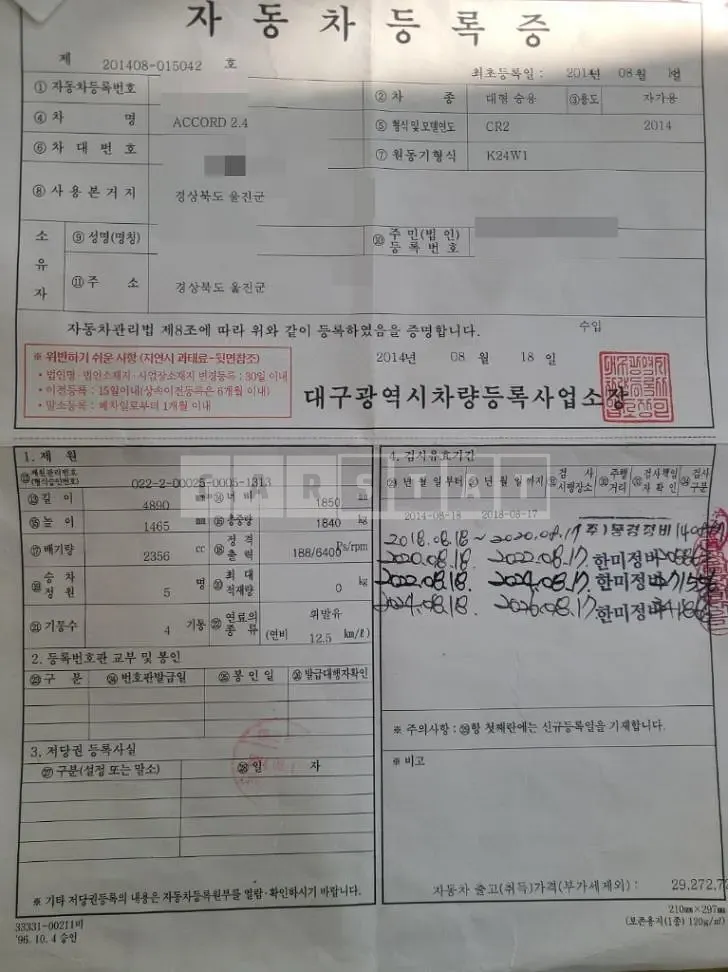 자동차등록증
제 201408-015042 호
최초등록일 : 2014년 08월
① 자동차등록번호
② 차 종 대형 승용 ③용도 자가용
④ 차 명 ACCORD 2.4
⑤ 형식 및 모델연도 CR2 2014
⑥ 차 대 번 호
⑦ 원동기형식 K24W1
⑧ 사 용 본 거 지 경상북도 울진군
소유자
⑨ 성명(명칭)
⑩ 주 민(법 인) 등 록 번 호
⑪ 주 소 경상북도 울진군
자동차관리법 제8조에 따라 위와 같이 등록하였음을 증명합니다.
수입
2014년 08 월 18 일
※ 위반하기 쉬운 사항 (지연시 과태료-뒷면참조)
• 법인명·법인소재지·사업장소재지 변경등록 : 30일 이내
• 이전등록 : 15일이내(상속이전등록은 6개월 이내)
• 말소등록 : 폐차일로부터 1개월 이내
대구광역시차량등록사업소장
CARSTAT
1. 제 원
⑫ 제원관리번호 (형식승인번호) 022-2-00025-0005-1313
⑬ 길 이 4890 mm ⑭ 너 비 1850 mm
⑮ 높 이 1465 mm ⑯ 총중량 1840 kg
⑰ 배기량 2356 cc ⑱ 정 격 출 력 188/6400 Ps/rpm
⑲ 승 차 정 원 5 명 ⑳ 최 대 적재량 0 kg
㉑ 기통수 4 기통 ㉒ 연료의 종 류 휘발유 (연비 12.5 km/ℓ)
2. 등록번호판 교부 및 봉인
㉓ 구 분 ㉔ 번호판발급일 ㉕ 봉 인 일 ㉖ 발급대행자확인
3. 저당권 등록사실
㉗ 구분(설정 또는 말소) ㉘ 일 자
※ 기타 저당권등록의 내용은 자동차등록원부를 열람·확인하시기 바랍니다.
4. 검사유효기간
㉙ 년 월 일부터 ㉚ 년 월 일까지 ㉛ 검 사 시행장소 ㉜ 주행 거리 ㉝ 검사책임 자 확 인 ㉞ 검사 구분
2014-08-18 2018-08-17
2018.08.18 ~ 2020.08.17
2020.08.18. 2022.08.17. 한미정비
2022.08.18 2024.08.17 한미정비
2024.08.18. 2026.08.17 한미정비
※ 주의사항 : ㉙항 첫째란에는 신규등록일을 기재합니다.
※ 비고
자동차 출고(취득)가격(부가세제외) : 29,272,7
33331-00211비
'96. 10. 4 승인
210㎜×297㎜
(보존용지(1종) 120g/㎡)